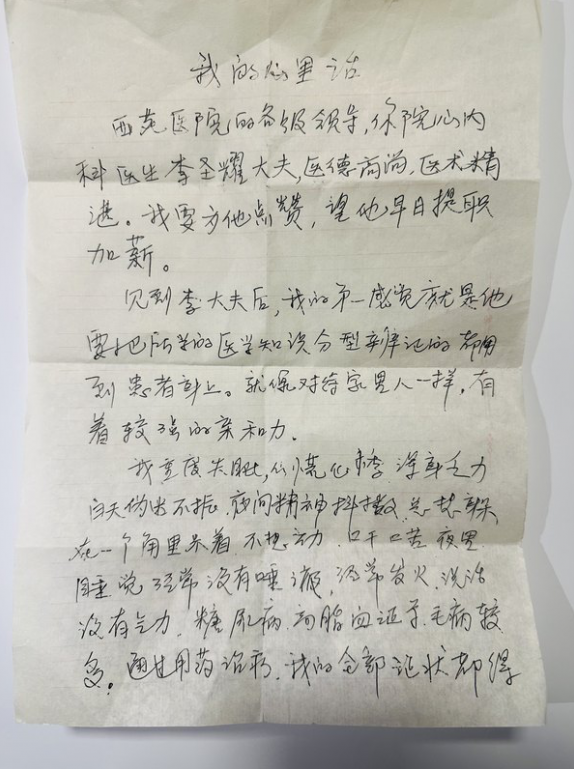 我的心里话
西苑医院的各级领导,你院心内
科医生李圣耀大夫,医德高尚,医术精
湛。我要为他点赞,望他早日提职
加薪。
见到李大夫后,我的第一感觉就是他
要把所学的医学知识分型辨证的都用
到患者身上。就像对待家里人一样,有
着较强的亲和力。
我重度失眠,心慌心 浑身乏力
白天 不振,夜间精神抖擞,总想躲
在一个角里呆着不想动,口干口苦夜里
睡觉经常没有唾液,经常发火,说话
没有气力,糖尿病、高脂血证等毛病较
多。通过用药治疗,我的全部症状都得